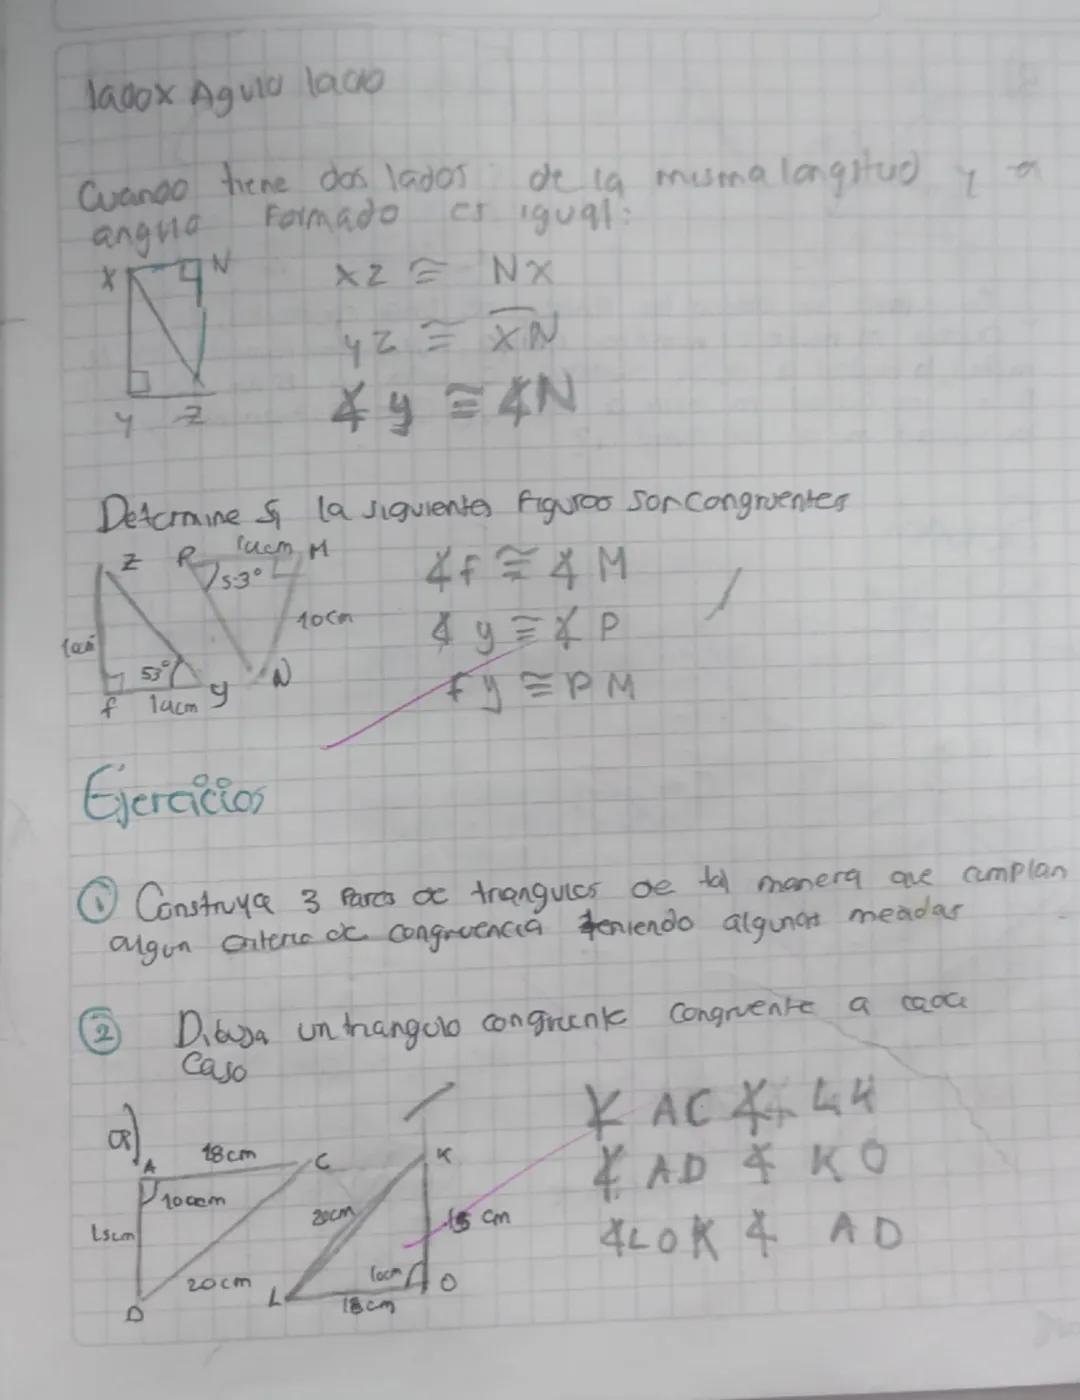 ladox Agulo lado
Cuando tiene dos lados de la misma longitud y
angulo Formado es igual:
X N
Y Z
XZ ≅ NX
YZ ≅ XN
∡ y ≅ ∡N
Determine si la siguientes figuras son congruentes
Z R 14cm M
53°
10cm
53° N
f 14cm y
∡f ≅ ∡ M
∡ y ≅ ∡ P
fy ≅ PM
Ejercicios
① Construya 3 Pares de triangulos de tal manera que cumplan
algun criterio de congruencia teniendo algunas medidas
② Dibuja un triangulo congruente congruente a cada
Caso
a)
A 18cm C
15cm
20cm
D
K
20cm 15 cm
L 18cm O
∡ AC ∡
∡ AD ∡ KO
∡LOK ∡ AD